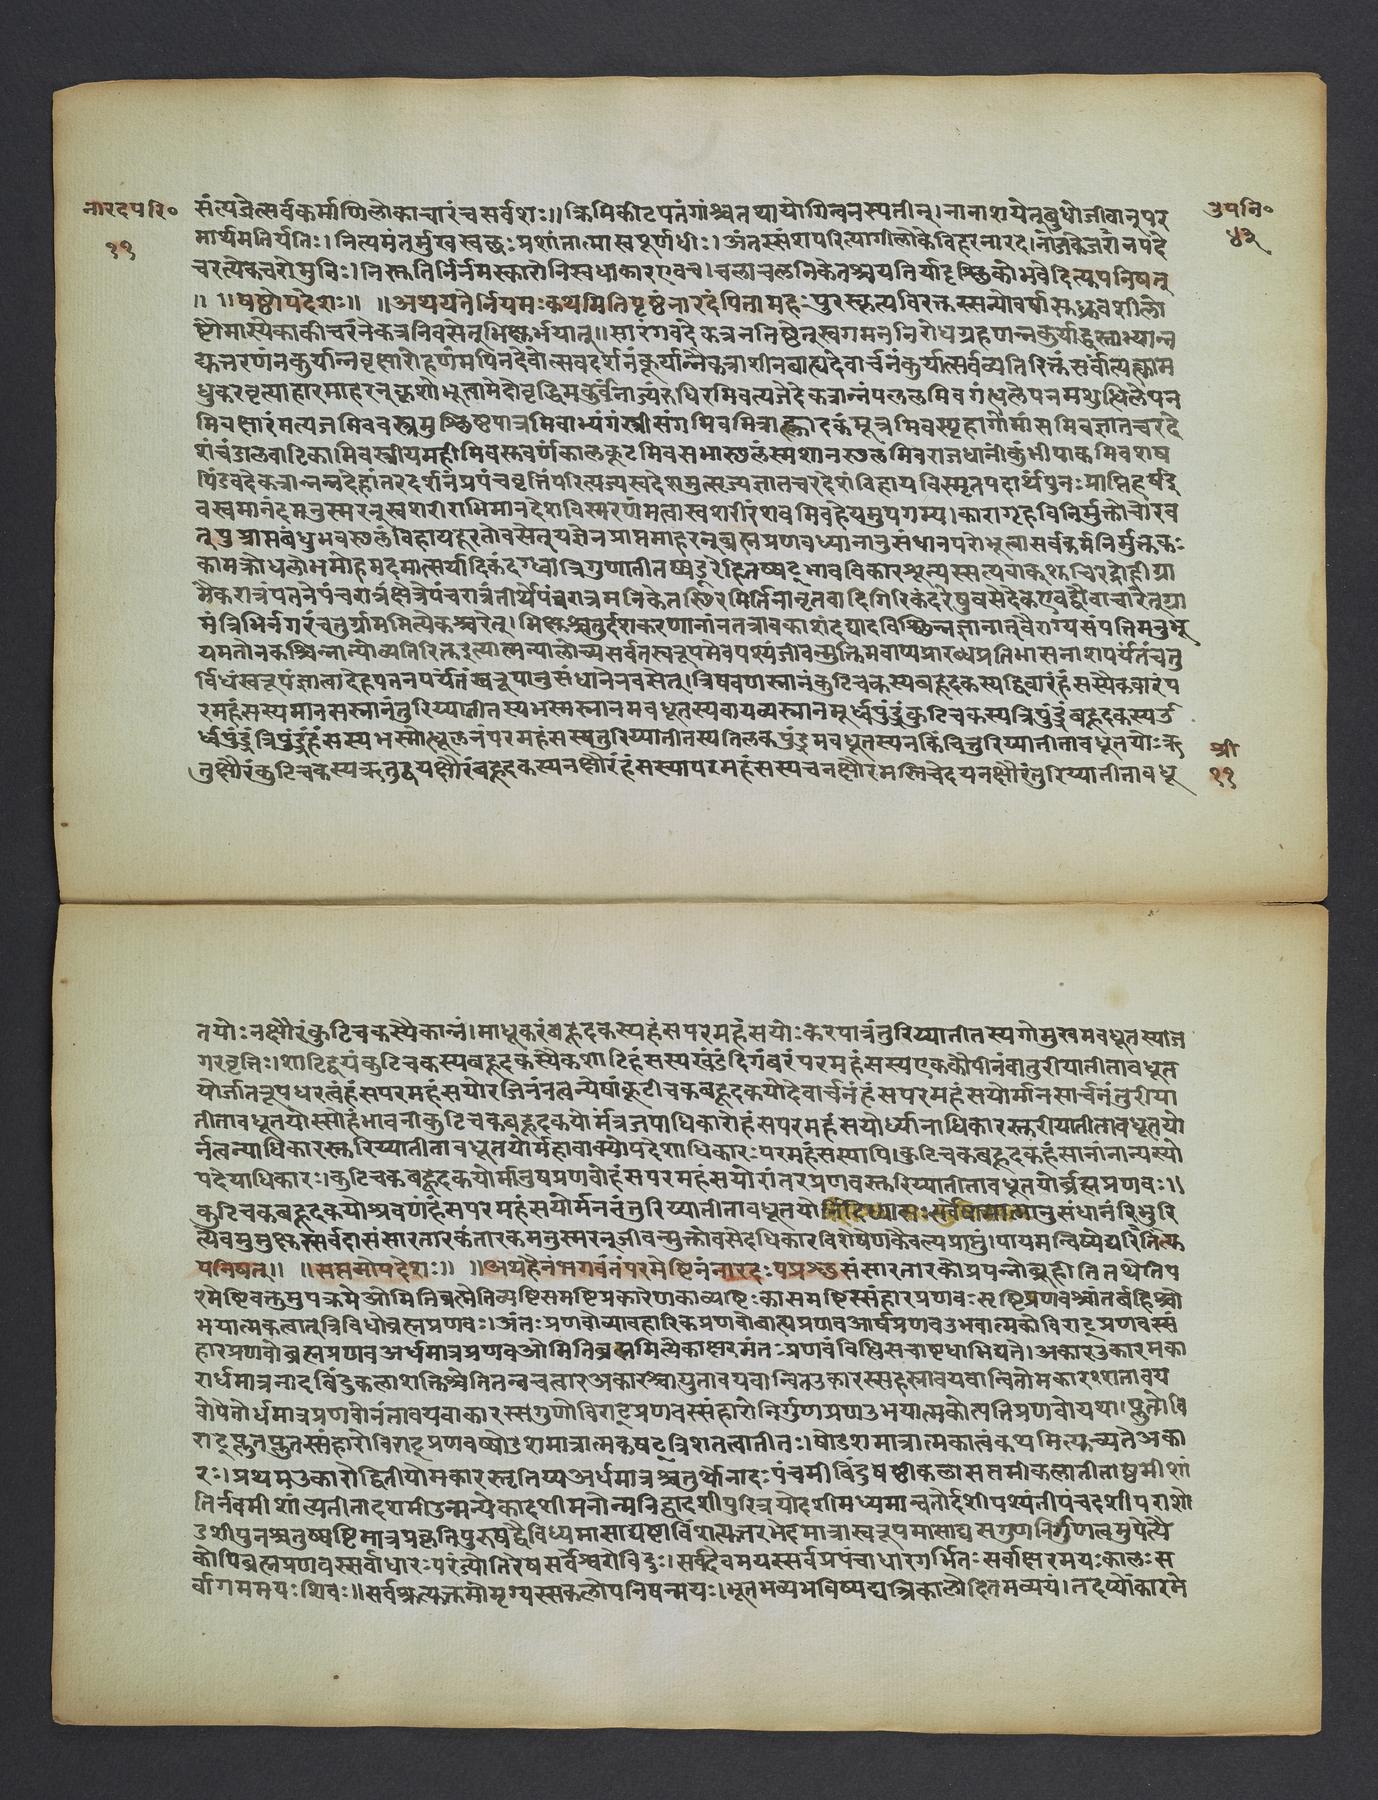 नारदपरि०
११
उपनि०
४३
संत्यजेत्सर्वकर्माणिलोकाचारंचसर्वशः॥क्रिमिकीटपतंगांश्चतथायोगिन्वनस्पतीन्।नानाशयेत्बुधोजीवान्परं
मार्थमतिर्यतिः।नित्यमंतर्मुखस्वच्छःप्रशांतात्मास्वपूर्णधीः।अंतस्संगपरित्यागीलोकेविहरनारद।नाजकेजरानपदे
चरत्येकचरोमुनिः।निस्तुतिर्निर्नमस्कारोनिस्वधाकारएवच।चलाचलनिकेतश्चयतिर्यादृच्छिकोभवेदित्युपनिषत्
॥ ॥षष्ठोपदेशः॥ ॥अथयतेर्नियमःकथमितिपृष्ठंनारदंपितामहःपुरस्कृत्यविरक्तस्सन्योवर्षासुध्रुवशीलो
ष्टौमास्येकाकीचरंनेकत्रनिवसेत्भिक्षुर्भयात्॥सारंगवदेकत्रनतिष्ठेत्स्वगमननिरोधग्रहणन्नकुर्याद्धस्ताभ्यान्न
द्युत्तरणंनकुर्यान्नवृक्षारोहणंमपिनदेवोत्सवदर्शनंकुर्यान्नैकत्राशीनबाह्यंदेवार्चनंकुर्यात्सर्वव्यतिरिक्तंसर्वात्यक्त्वाम
धुकरवृत्याहारमाहरन्कृशोभूत्वामेदोवृद्धिमकुर्वन्नाज्यंरुधिरमिवत्यजेदेकत्रान्नंपललमिवगंधलेपनमशुध्दिलेपन
मिवक्षारंमत्यजमिववस्त्रमुच्छिष्टपात्रमिवाभ्यंगंस्त्रीसंगमिवमित्राल्हादकंमूत्रमिवस्पृहांगोमांसमिवज्ञातचरदे
शंचंडालवाटिकामिवस्त्रीयमहीमिवसुवर्णंकालकूटमिवसभास्तलंस्मशानस्तलमिवराजधानींकुंभीपाकमिवशव
पिंडवदेकत्रान्नन्नदेहांतरदर्शनंप्रपंचवृत्तिंपरित्यज्यस्वदेशमुत्सृज्यज्ञातचरदेशंविहायविस्मृतपदार्थंपुनःप्राप्तिहर्षइ
वस्वमानंदमनुस्मरन्स्वशरीराभिमानदेशविस्मरणंमत्वास्वशरीरंशवमिवहेयमुपगम्य।कारागृहविनिर्मुक्तोचोरव
त्पुत्राप्तबंधुभवस्तलंविहायदूरतोवसेत्यत्नेनप्राप्तमाहरन्ब्रह्मप्रणवध्यानानुसंधानपरोभूत्वासर्वकर्मनिर्मुक्तः
कामक्रोधलोभमोहमदमात्सर्यादिकंदग्ध्वात्रिगुणातीतष्षडूर्मिरहितष्षद्भावविकारशून्यस्सत्यवाक्शुचिरद्रोहीग्रा
मैकरात्रंपत्तनेपंचरात्रंक्षेत्रेपंचरात्रंतीर्थेपंचरात्रमनिकेतस्थिरमतिर्नानृतवादिगिरिकंदरेषुवसेदेकएवद्वौवाचरेत्ग्रा
मंत्रिभिर्नगरंचतुर्ग्राममित्येकश्चरेत्।भिक्षुश्चतुर्दशकरणानांनतत्रावकाशंदद्यादविच्छिन्नज्ञानात्वैराग्यसंपत्तिमनुभू
यमतोनकश्चिन्नान्योव्यतिरिक्तइत्यात्मन्यालोच्यसर्वतस्वरूपमेवपश्यंजीवन्मुक्तिमवाप्यप्रारब्धप्रतिभासनाशपर्यंतंचतु
र्विधंस्वरूपंज्ञात्वादेहपतनपर्यंतंस्वरूपानुसंधानेनवसेत्।त्रिषवणस्नानंकुटिचकस्यबहूदकस्यद्विवारंहंसस्यैकवारंप
रमहंसस्यमानसस्नानंतुरिय्यातीतस्यभस्मस्नानमवधूतस्यवायव्यस्नानमूर्ध्वपुंड्रंकुटिचकस्यत्रिपुंड्रंबहूदकस्यऊ
र्ध्वपुंड्रंत्रिपुंड्रंहंसस्यभस्मोत्धूलनंपरमहंसस्यतुरिय्यातीतस्यतिलकपुंड्रमवधूतस्यनकिंचित्तुरिय्यातीतावधूतयोःऋ
तुक्षौरंकुटिचकस्यऋतुद्वयक्षौरंबहूदकस्यनक्षौरंहंसस्यापरमहंसस्यचनक्षौरमस्तिचेदयनक्षौरंतुरिय्यातीतावधू
श्री
११
तयोःनक्षौरंकुटिचकस्यैकान्नं।माधूकरंबहूदकस्यहंसपरमहंसयोःकरपात्रंतुरिय्यातीतस्यगोमुखमवधूतस्याज
गरवृत्तिः।शाटिद्वयंकुटिचकस्यबहूदकस्यैकशाटिहंसस्यखंडंदिगंबरंपरमहंसस्यएककौपीनंवातुरीयातीतावधूत
योर्जातरूपधरत्वंहंसपरमहंसयोरजिनंनत्वन्येषांकुटीचकबहूदकयोदेवार्चनंहंसपरमहंसयोर्मानसार्चनंतुरीया
तीतावधूतयोस्सोहंभावनाकुटिचकबहूदकयोर्मंत्रजपाधिकारोहंसपरमहंसयोर्ध्यानाधिकारस्तुरीयातीतावधूतयो
र्नत्वन्याधिकारस्तुरिय्यातीतावधूतयोर्महावाक्योपदेशाधिकारःपरमहंसस्यापि।कुटिचकबहूदकहंसानांनान्यस्यो
पदेयाधिकारः।कुटिचकबहूदकयोर्मानुषप्रणवोहंसपरमहंसयोरांतरप्रणवस्तुरिय्यातीतावधूतयोर्ब्रह्मप्रणवः॥
कुटिचकबहूदकयोश्रवणंहंसपरमहंसयोर्मननंतुरिय्यातीतावधूतयोर्निदिध्यासःसर्वेषामात्मानुसंधानंविभुरि
त्येवमुमुक्षुस्सर्वदासंसारतारकंतारकमनुस्मरन्जीवन्मुक्तोवसेदधिकारविशेषेणकैवल्यप्राप्तु।पायमन्विष्येद्यतिरित्यु
पनिषत्॥ ॥सप्तमोपदेशः॥ ॥अथहैनंभगवंतंपरमेष्टिनंनारदःपप्रश्छसंसारतारकोप्रपन्नोब्रूहीतितथेतिप
रमेष्टिवक्तुमुपक्रमेओमितिब्रह्मेतिव्यष्टिसमष्टिप्रकारेणकाव्यष्टिःकासमष्टिस्संहारप्रणवःसृष्टिप्रणवश्चांतर्बहिश्चो
भयात्मकत्वात्त्रिविधोब्रह्मप्रणवः।अंतःप्रणवोव्यावहारिकप्रणवोबाह्यप्रणवआर्षप्रणवउभयात्मकोविराट्प्रणवस्सं
हारप्रणवोब्रह्मप्रणवअर्धमात्रप्रणवओमितिब्रह्ममित्येकाक्षरमंतःप्रणवंविधिसचाष्टधाभिद्यते।अकारउकारमका
रार्धमात्रनादबिंदुकलाशक्तिश्चेतितन्नचत्वारअकारश्चायुतावयवान्वितउकारस्सहस्रावयवान्वितोमकारशशतावय
वोपेतोर्धमात्रप्रणवोनंतावयवाकारस्सगुणोविराट्प्रणवस्संहारोनिर्गुणप्रणउभयात्मकोत्पत्तिप्रणवोयथा।प्लुतोवि
राट्प्लुतप्लुतस्संहारोविराट्प्रणवष्षोडशमात्रात्मकषट्त्रिंशतत्वातीतः।षोडशमात्रात्मकात्वंकथमित्युच्यतेअका
रः।प्रथमउकारोद्वितीयोमकारस्तृतिय्यअर्धमात्रश्चतुर्थोनादःपंचमीबिंदुषष्ठीकलासप्तमीकलातीताष्टमीशां
तिर्नवमीशांत्यतीतादशमीउन्मन्येकादशीमनोन्मनिद्वादशीपुरित्रयोदशीमध्यमाचतोर्दशीपश्यंतीपंचदशीपराशो
डशीपुनश्चतुष्षष्टिमात्रप्रकृतिपुरुषद्वैविध्यमासाद्यष्टाविंशत्युत्तरभेदमात्रास्वरूपमासाद्यसगुणनिर्गुणत्वमुपेत्यै
कोपिब्रह्मप्रणवस्सर्वाधारःपरंज्योतिरेषसर्वेश्वरोविदुः।सर्वदेवमयस्सर्वप्रपंचाधारगर्भितःसर्वाक्षरमयःकालःस
र्वागममयःशिवः॥सर्वश्रुत्युत्तमोमृग्यस्सकलोपनिषन्मयः।भूतभव्यभविष्यद्यत्रिकालोदितमव्ययं।तदप्योंकारमे